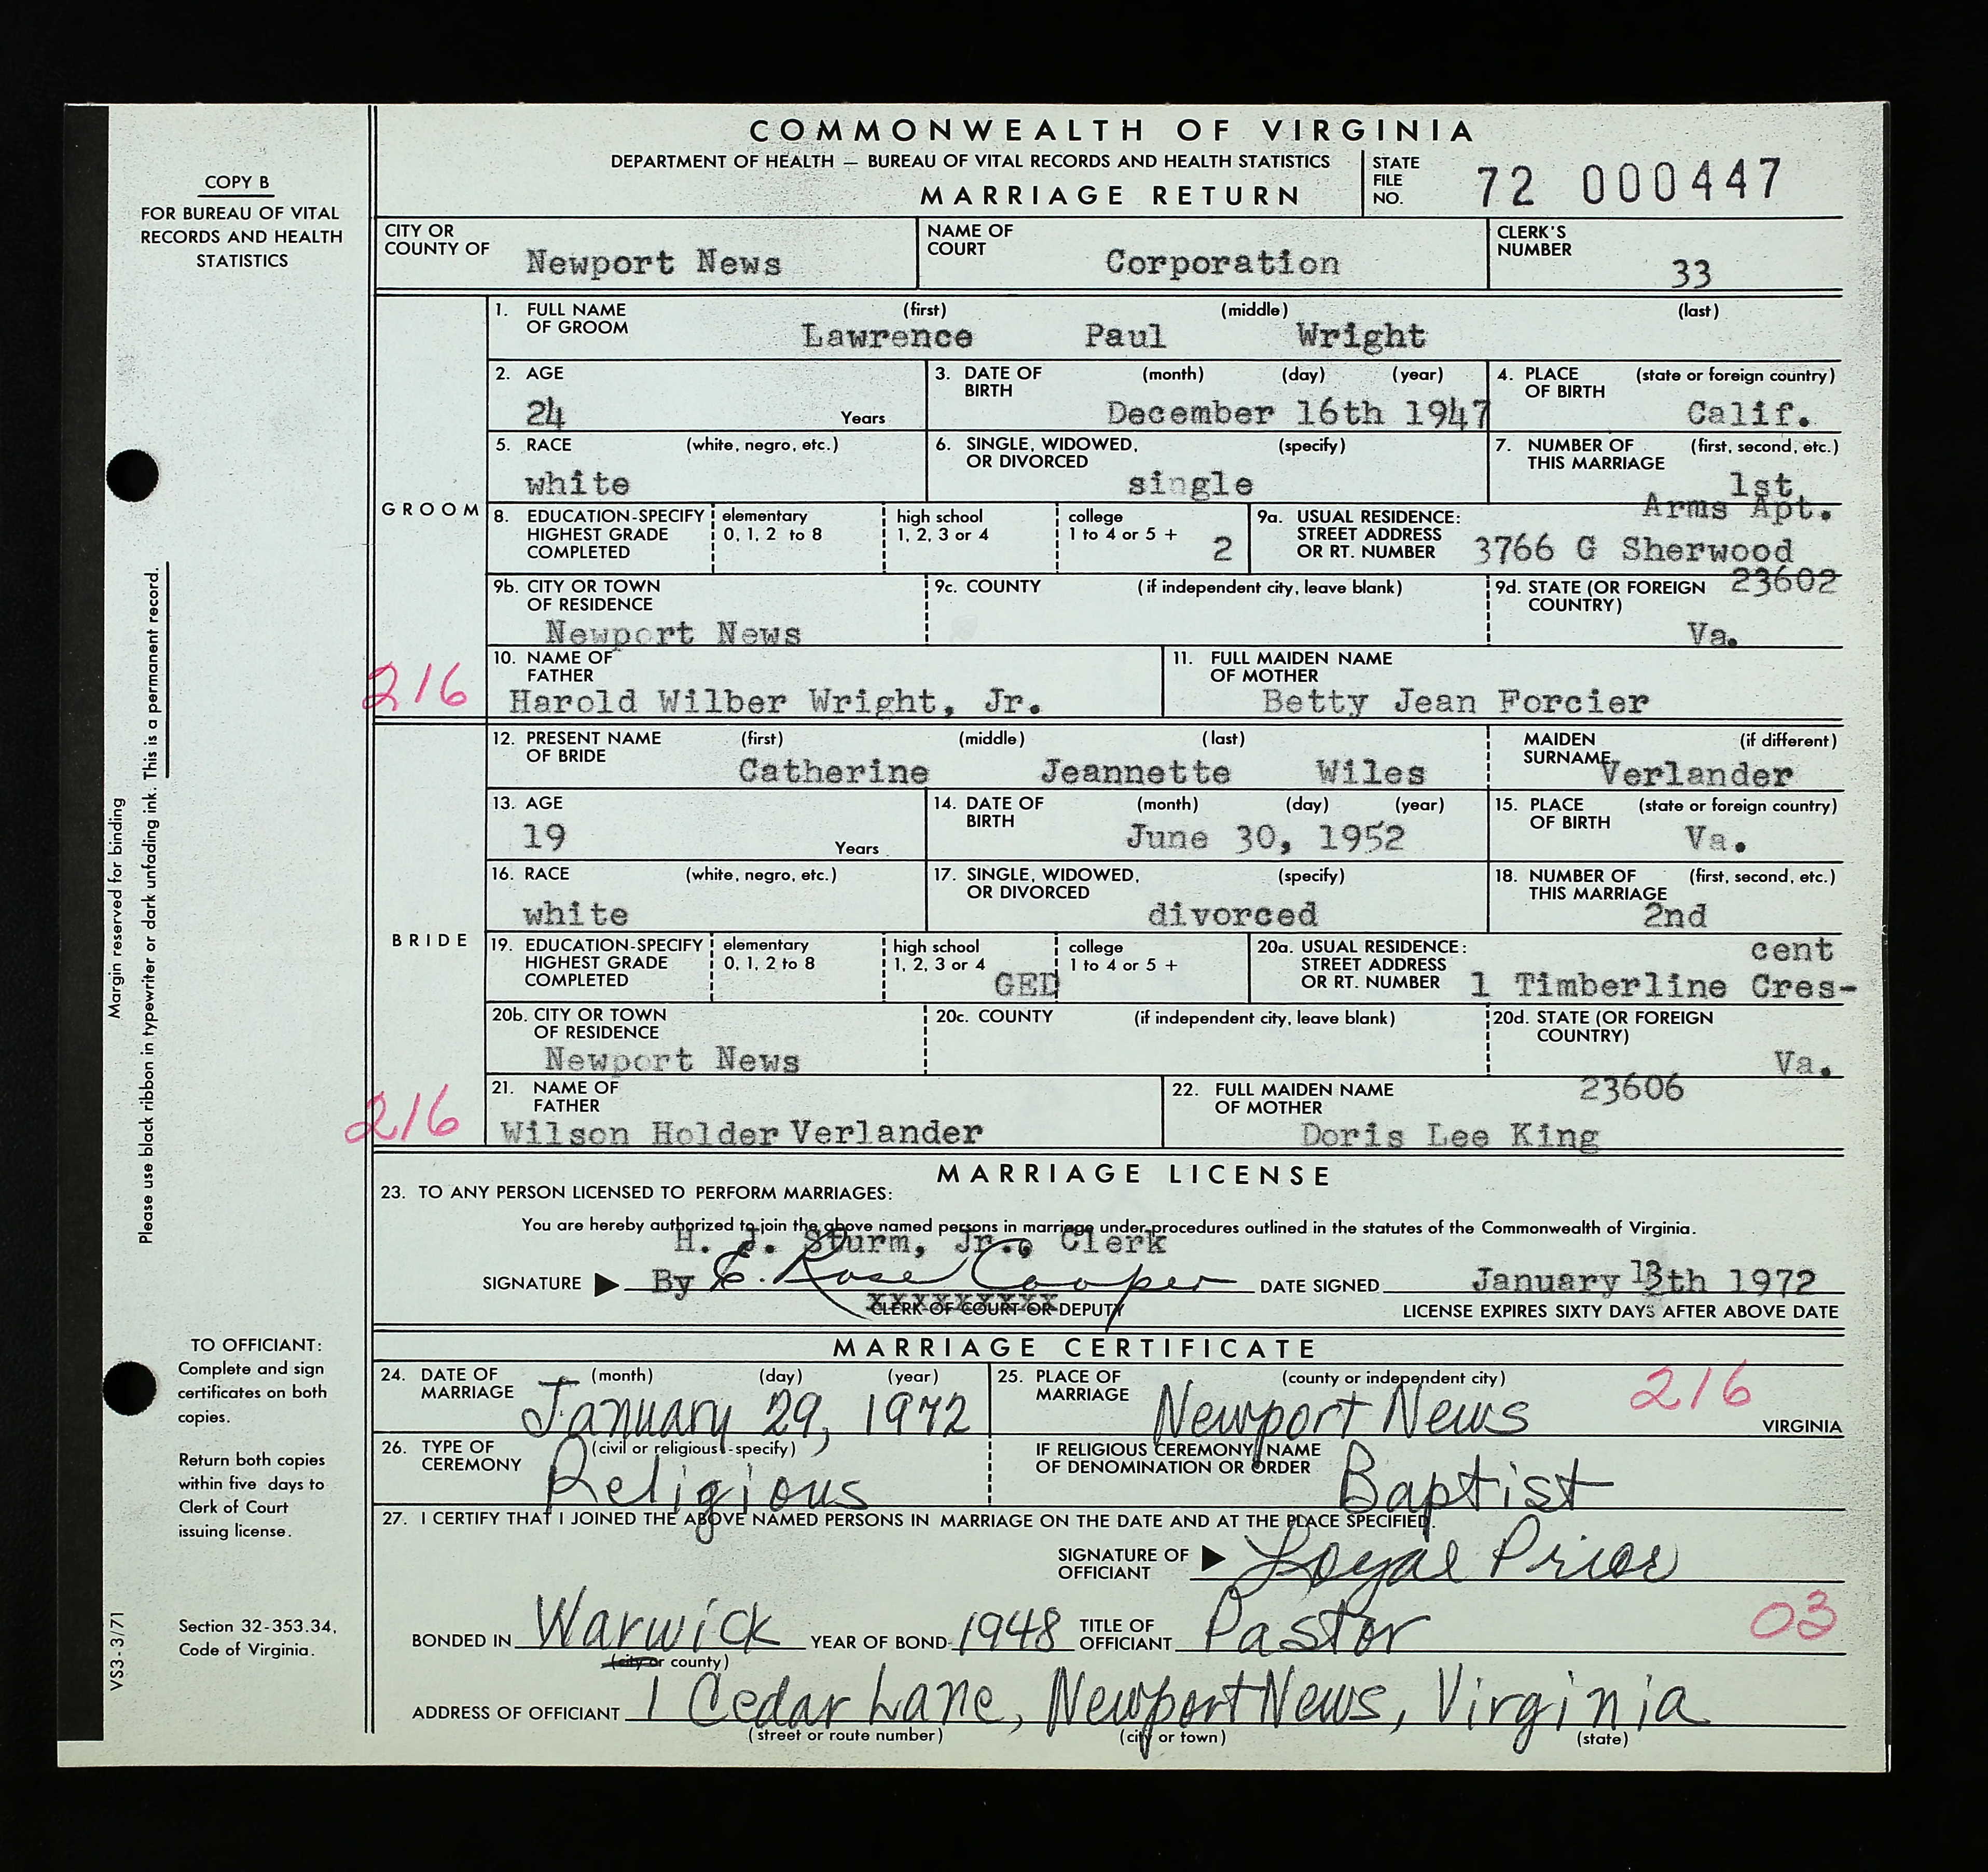 COMMONWEALTH OF VIRGINIA
DEPARTMENT OF HEALTH — BUREAU OF VITAL RECORDS AND HEALTH STATISTICS
MARRIAGE RETURN
STATE FILE NO. 72 000447
COPY B
FOR BUREAU OF VITAL
RECORDS AND HEALTH
STATISTICS
CITY OR COUNTY OF Newport News
NAME OF COURT Corporation
CLERK'S NUMBER 33
GROOM
1. FULL NAME OF GROOM (first) (middle) (last)
Lawrence Paul Wright
2. AGE 24 Years
3. DATE OF BIRTH (month) (day) (year)
December 16th 1947
4. PLACE OF BIRTH (state or foreign country)
Calif.
5. RACE (white, negro, etc.)
white
6. SINGLE, WIDOWED, OR DIVORCED (specify)
single
7. NUMBER OF THIS MARRIAGE (first, second, etc.)
1st
8. EDUCATION-SPECIFY HIGHEST GRADE COMPLETED
elementary 0, 1, 2 to 8
high school 1, 2, 3 or 4
college 1 to 4 or 5 + 2
9a. USUAL RESIDENCE: STREET ADDRESS OR RT. NUMBER
Arms Apt.
3766 G Sherwood
9b. CITY OR TOWN OF RESIDENCE
Newport News
9c. COUNTY (if independent city, leave blank)
9d. STATE (OR FOREIGN COUNTRY) 23602
Va.
216
10. NAME OF FATHER
Harold Wilber Wright, Jr.
11. FULL MAIDEN NAME OF MOTHER
Betty Jean Forcier
BRIDE
12. PRESENT NAME OF BRIDE (first) (middle) (last)
Catherine Jeannette Wiles
MAIDEN SURNAME (if different)
Verlander
13. AGE 19 Years
14. DATE OF BIRTH (month) (day) (year)
June 30, 1952
15. PLACE OF BIRTH (state or foreign country)
Va.
16. RACE (white, negro, etc.)
white
17. SINGLE, WIDOWED, OR DIVORCED (specify)
divorced
18. NUMBER OF THIS MARRIAGE (first, second, etc.)
2nd
19. EDUCATION-SPECIFY HIGHEST GRADE COMPLETED
elementary 0, 1, 2 to 8
high school 1, 2, 3 or 4 GED
college 1 to 4 or 5 +
20a. USUAL RESIDENCE: STREET ADDRESS OR RT. NUMBER
cent
1 Timberline Cres-
20b. CITY OR TOWN OF RESIDENCE
Newport News
20c. COUNTY (if independent city, leave blank)
20d. STATE (OR FOREIGN COUNTRY)
Va.
23606
216
21. NAME OF FATHER
Wilson Holder Verlander
22. FULL MAIDEN NAME OF MOTHER
Doris Lee King
MARRIAGE LICENSE
23. TO ANY PERSON LICENSED TO PERFORM MARRIAGES:
You are hereby authorized to join the above named persons in marriage under procedures outlined in the statutes of the Commonwealth of Virginia.
H. J. Sturm, Jr., Clerk
SIGNATURE ▶ By E. Rose Cooper DATE SIGNED January 13th 1972
xxxxxxxxx
CLERK OF COURT OR DEPUTY
LICENSE EXPIRES SIXTY DAYS AFTER ABOVE DATE
MARRIAGE CERTIFICATE
24. DATE OF MARRIAGE (month) (day) (year)
January 29, 1972
25. PLACE OF MARRIAGE (county or independent city)
Newport News 216 VIRGINIA
26. TYPE OF CEREMONY (civil or religious-specify)
Religious
IF RELIGIOUS CEREMONY, NAME OF DENOMINATION OR ORDER
Baptist
27. I CERTIFY THAT I JOINED THE ABOVE NAMED PERSONS IN MARRIAGE ON THE DATE AND AT THE PLACE SPECIFIED.
SIGNATURE OF OFFICIANT ▶ Loyal Prior
BONDED IN Warwick YEAR OF BOND 1948 TITLE OF OFFICIANT Pastor 03
(city or county)
ADDRESS OF OFFICIANT 1 Cedar Lane, Newport News, Virginia
(street or route number) (city or town) (state)
Margin reserved for binding
Please use black ribbon in typewriter or dark unfading ink. This is a permanent record.
TO OFFICIANT:
Complete and sign
certificates on both
copies.
Return both copies
within five days to
Clerk of Court
issuing license.
Section 32-353.34,
Code of Virginia.
VS3-3/71